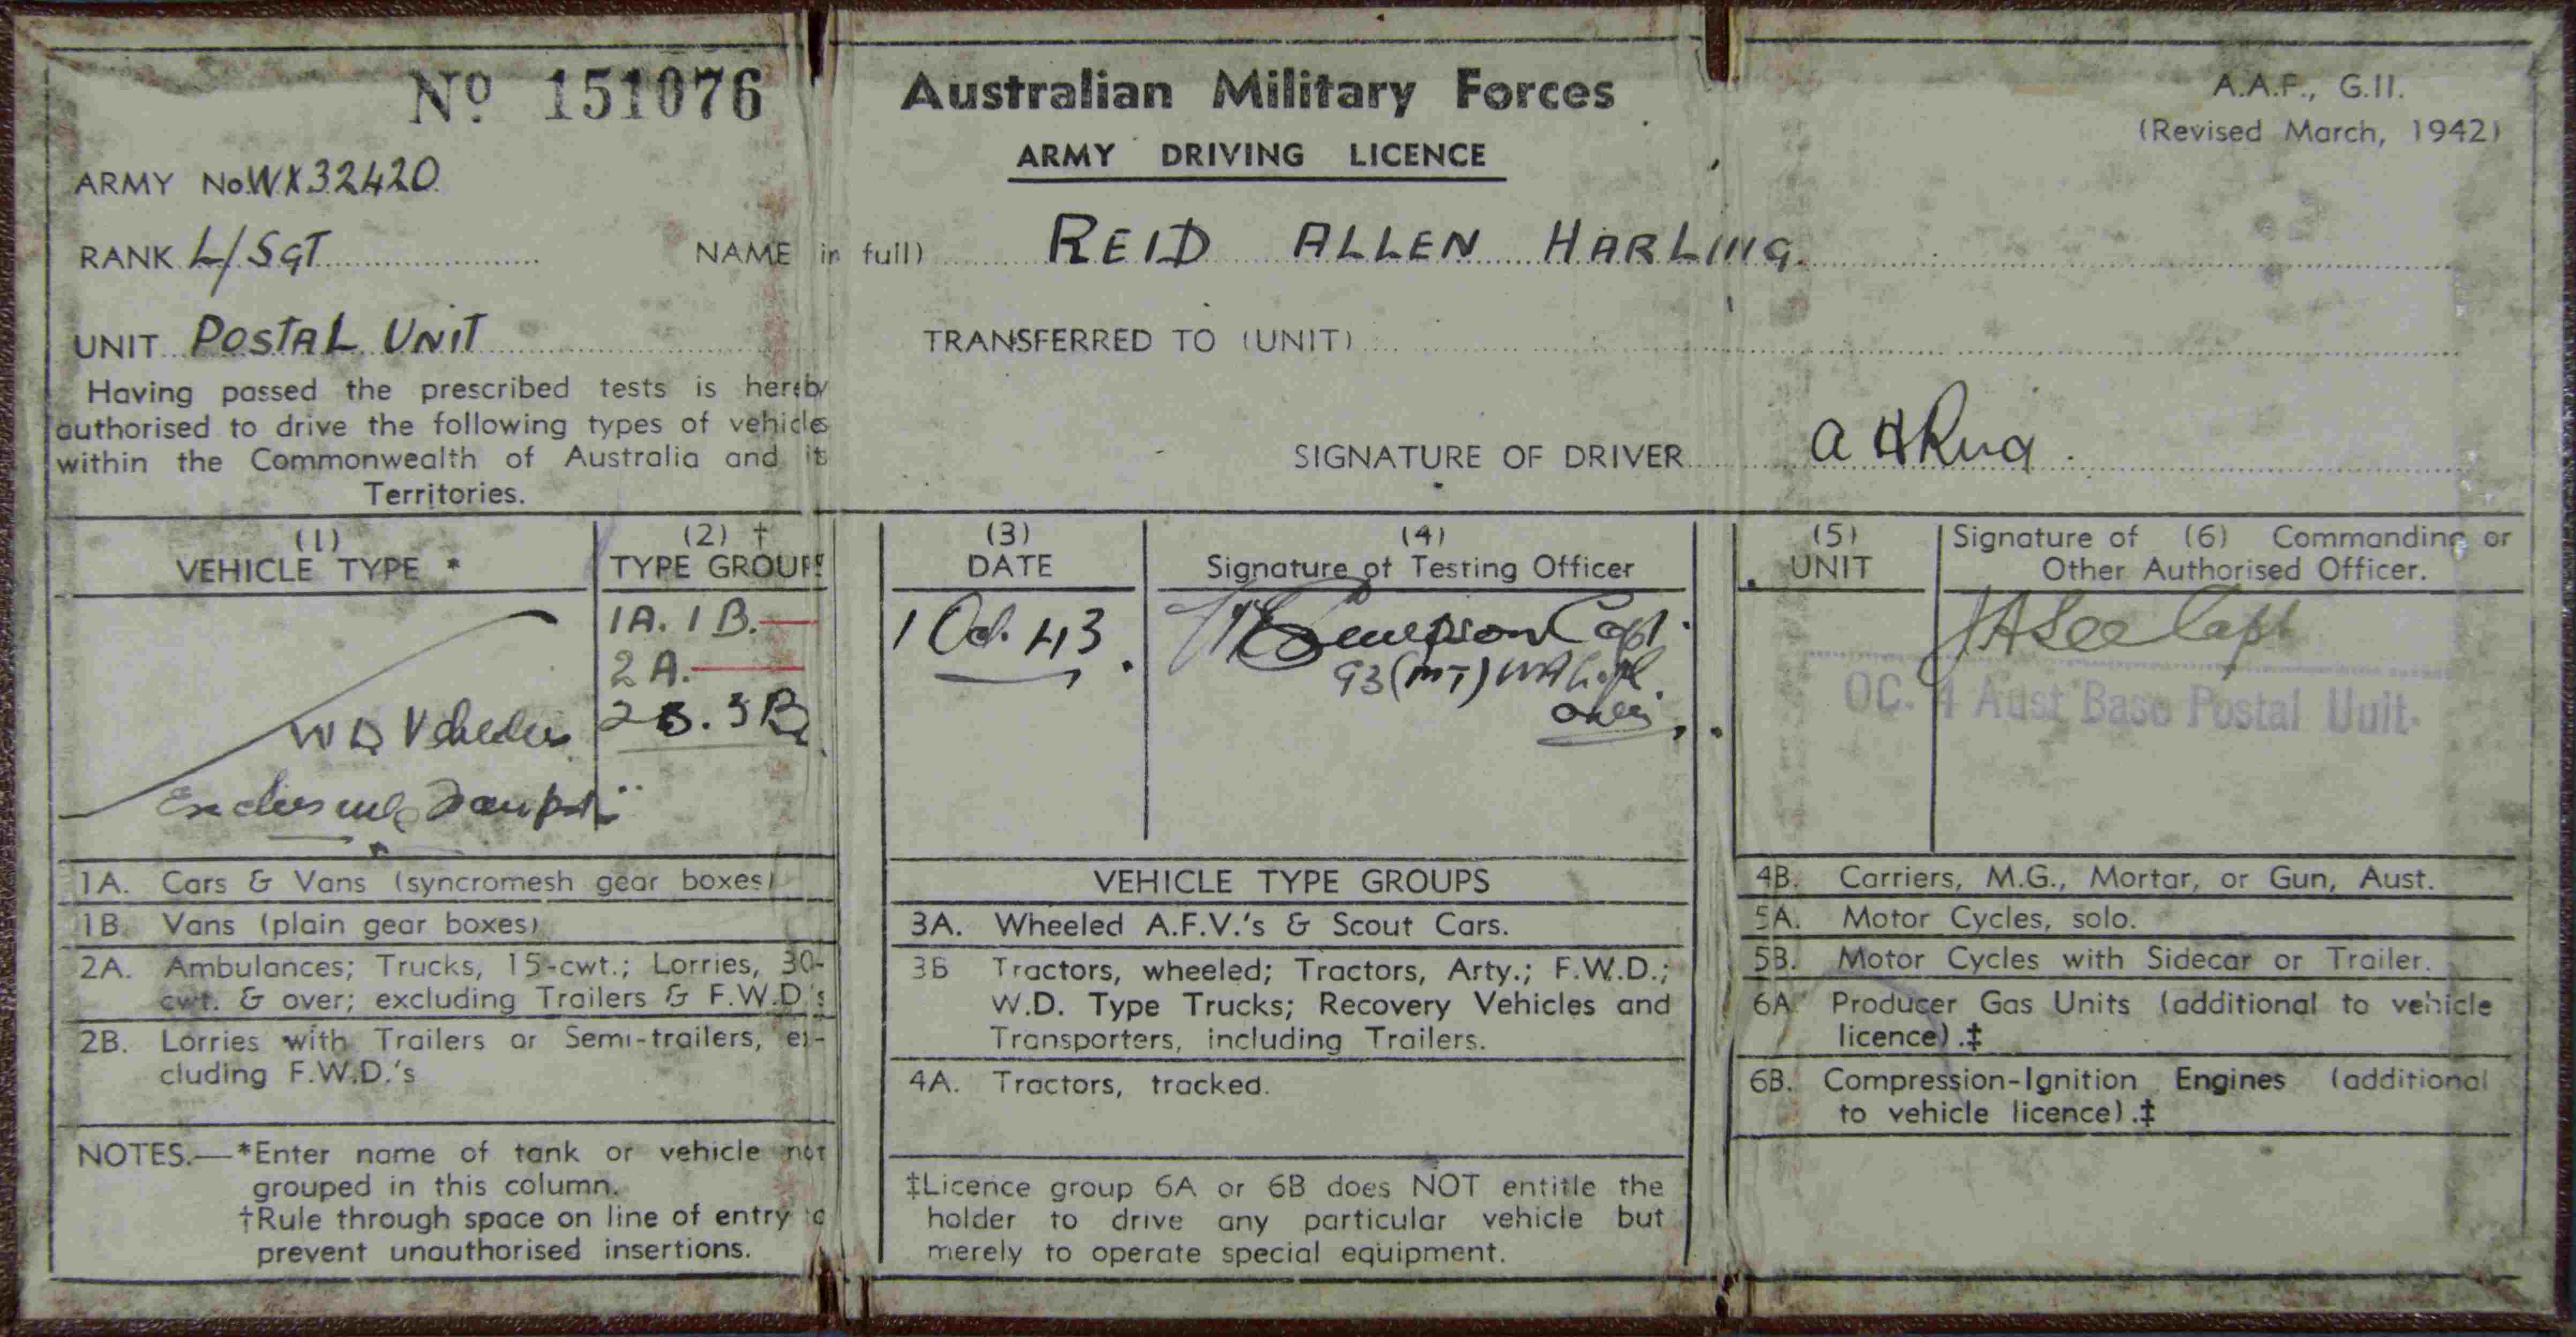 No 151076
Australian Military Forces
ARMY DRIVING LICENCE
A.A.F., G.II.
(Revised March, 1942)
ARMY No. WX32420
RANK L/SGT
NAME in full) REID ALLEN HARLING.
UNIT POSTAL UNIT
TRANSFERRED TO (UNIT)
Having passed the prescribed tests is hereby
authorised to drive the following types of vehicles
within the Commonwealth of Australia and its
Territories.
SIGNATURE OF DRIVER A H Reid.
(1)
VEHICLE TYPE *
W D Vehicles
(2) †
TYPE GROUP
1A. 1B.
2A.
2B. 3B
(3)
DATE
1 Oct. 43
(4)
Signature of Testing Officer
Capt.
93 (MT)
(5)
UNIT
Signature of (6) Commanding or
Other Authorised Officer.
Capt
OC. 4 Aust Base Postal Unit.
1A. Cars & Vans (syncromesh gear boxes)
1B. Vans (plain gear boxes)
2A. Ambulances; Trucks, 15-cwt.; Lorries, 30-
cwt. & over; excluding Trailers & F.W.D.'s
2B. Lorries with Trailers or Semi-trailers, ex-
cluding F.W.D.'s
NOTES.—*Enter name of tank or vehicle not
grouped in this column.
†Rule through space on line of entry to
prevent unauthorised insertions.
VEHICLE TYPE GROUPS
3A. Wheeled A.F.V.'s & Scout Cars.
3B Tractors, wheeled; Tractors, Arty.; F.W.D.;
W.D. Type Trucks; Recovery Vehicles and
Transporters, including Trailers.
4A. Tractors, tracked.
‡Licence group 6A or 6B does NOT entitle the
holder to drive any particular vehicle but
merely to operate special equipment.
4B. Carriers, M.G., Mortar, or Gun, Aust.
5A. Motor Cycles, solo.
5B. Motor Cycles with Sidecar or Trailer.
6A Producer Gas Units (additional to vehicle
licence).‡
6B. Compression-Ignition Engines (additional
to vehicle licence).‡